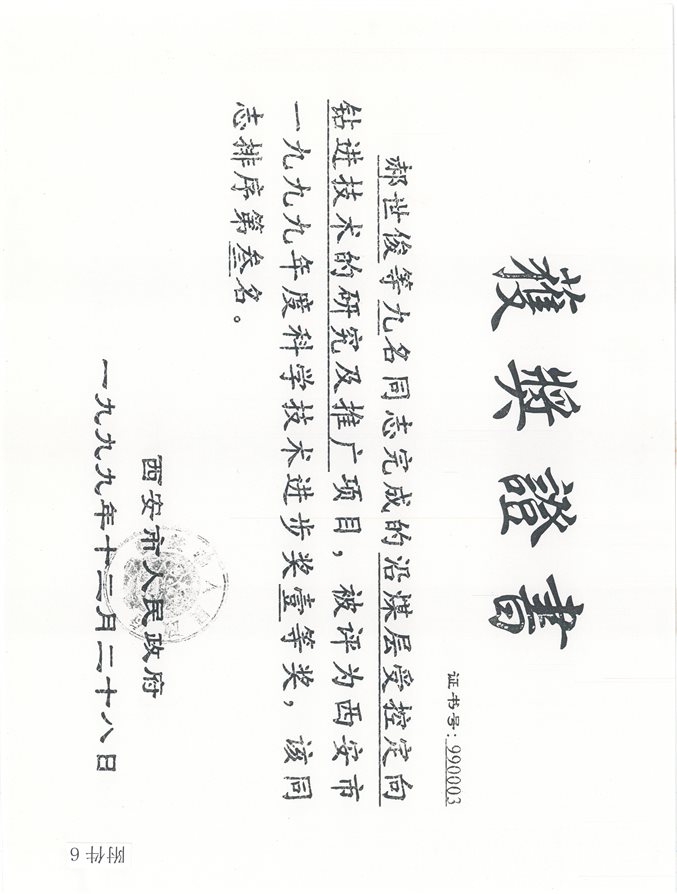 獲奬證書
证书号：990003
郝世俊等九名同志完成的沿煤层受控定向
钻进技术的研究及推广项目，被评为西安市
一九九九年度科学技术进步奖壹等奖，该同
志排序第叁名。
西安市人民政府
一九九九年十二月二十八日
附件6